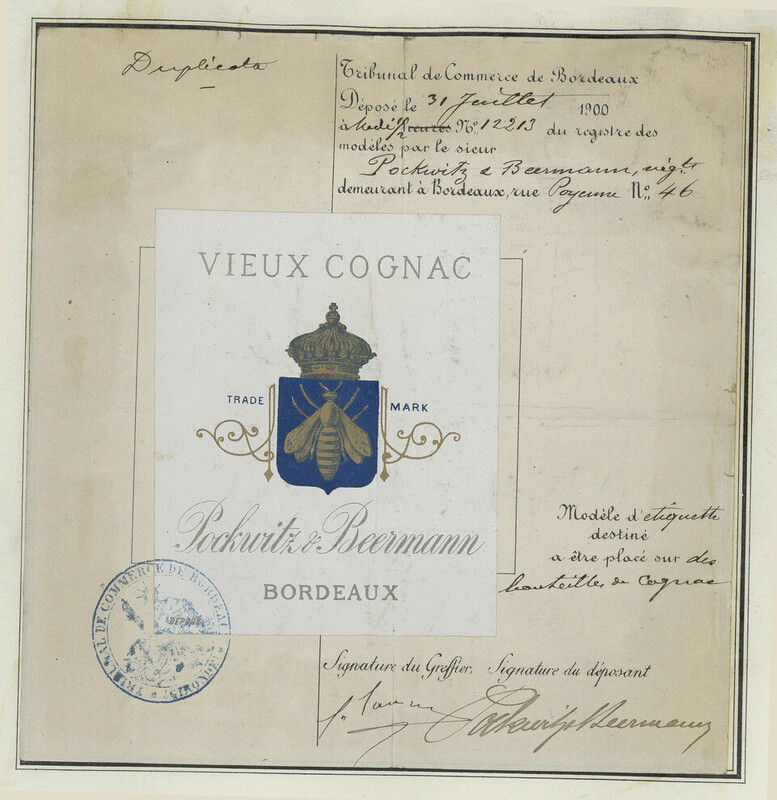 Duplicata
Tribunal de Commerce de Bordeaux
Déposé le 31 Juillet 1900
à Midi 1/2 heures N° 12213 du registre des
modèles par le sieur
Pockwitz & Beermann, négts
demeurant à Bordeaux, rue Poyenne N° 46
VIEUX COGNAC
TRADE MARK
Pockwitz & Beermann
BORDEAUX
Modèle d'étiquette
destiné
a être placé sur des
bouteilles de Cognac
TRIBUNAL DE COMMERCE DE BORDEAUX
DÉPOSÉ
(GIRONDE)
Signature du Greffier, Signature du déposant
Pockwitz & Beermann